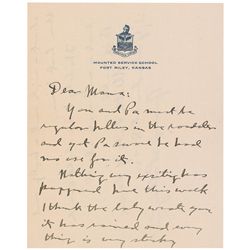 MOUNTED SERVICE SCHOOL
FORT RILEY, KANSAS
Dear Mama:
You and Pa must be
regular hellers in the roadster
and yet Pa swore he had
no use for it.
Nothing very exciting has
happened here this week
I think the baby wrote you
it has rained and every
thing is very sticky